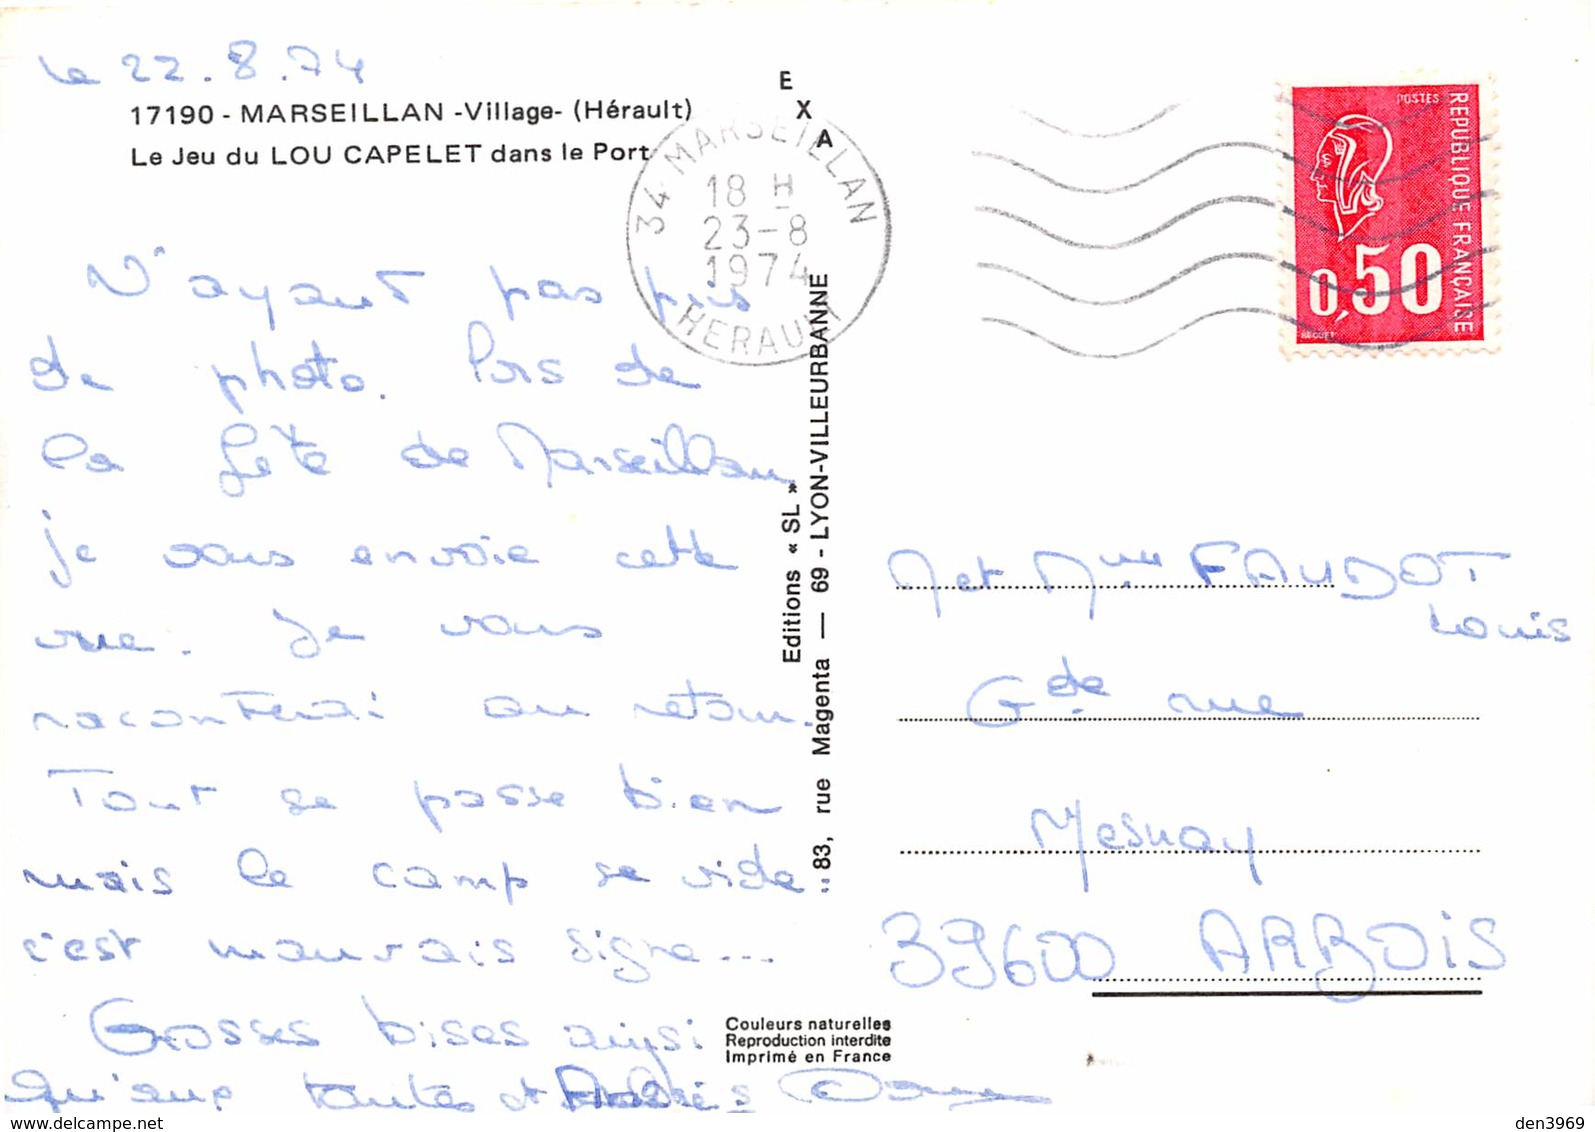 le 22.8.74
17190 - MARSEILLAN -Village- (Hérault)
Le Jeu du LOU CAPELET dans le Port
E
X
A
34 MARSEILLAN
18 H
23-8
1974
HERAULT
POSTES
REPUBLIQUE FRANÇAISE
0,50
BEQUET
N'ayant pas pris
de photo. lors de
la fête de Marseillan
je vous envoie cette
vue. Je vous
raconterai au retour.
Tout se passe bien
mais le camp se vide
c'est mauvais signe...
Grosses bises ainsi
qu'aux tantes et
Editions « SL »
83, rue Magenta — 69 - LYON-VILLEURBANNE
M et Mme FAUDOT
Louis
Gde rue
Mesnay
39600 ARBOIS
Couleurs naturelles
Reproduction interdite
Imprimé en France
www.delcampe.net
den3969